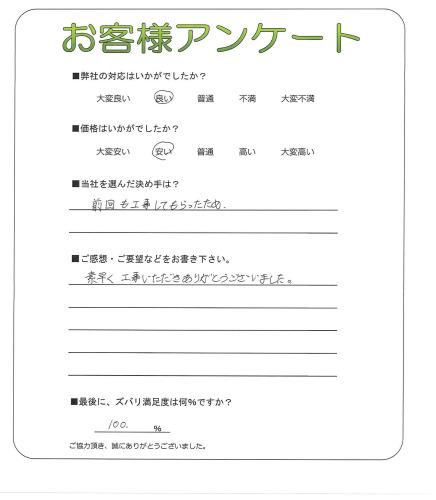 お客様アンケート
■弊社の対応はいかがでしたか？
大変良い 良い 普通 不満 大変不満
■価格はいかがでしたか？
大変安い 安い 普通 高い 大変高い
■当社を選んだ決め手は？
前回も工事してもらったため.
■ご感想・ご要望などをお書き下さい。
素早く工事いただきありがとうございました。
■最後に、ズバリ満足度は何%ですか？
100. %
ご協力頂き、誠にありがとうございました。